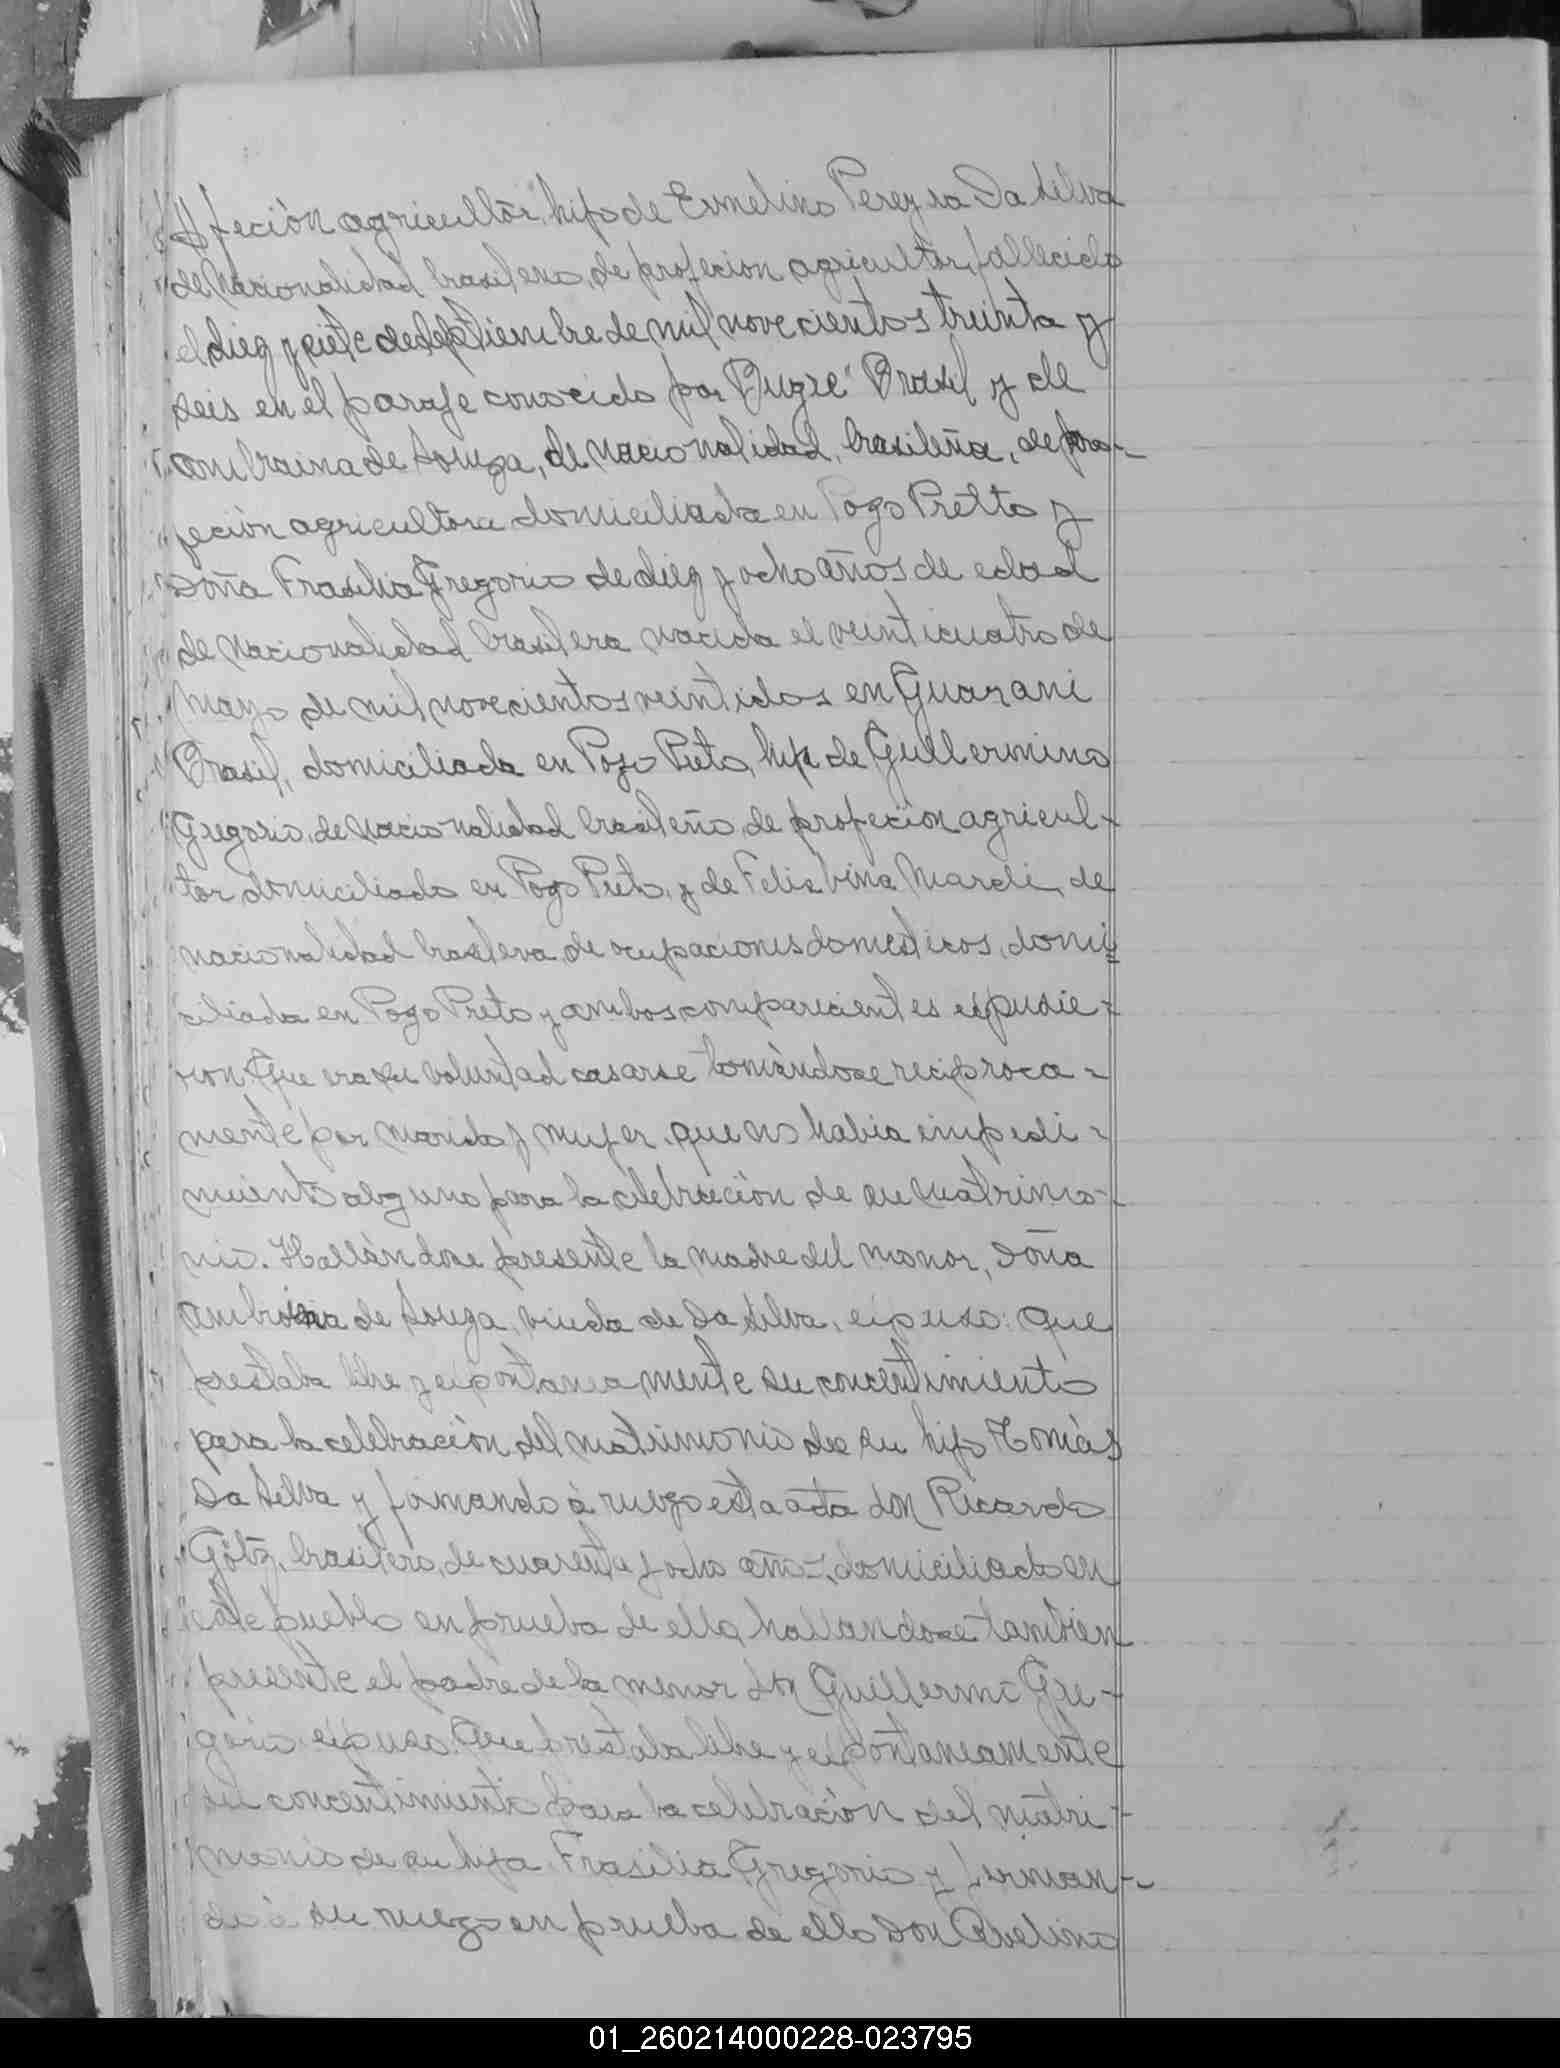 feción agricultor, hijo de Ermelino Pereyra Da Silva
de nacionalidad brasilero, de profecion agricultor, fallecido
el diez y siete de septiembre de mil novecientos treinta y
seis en el paraje conocido por Bugre" Brasil y de
ambraina de Souza, de nacionalidad, brasileña, de pro-
feción agricultora domiciliada en Pozo Pretto y
Doña Frasilia Gregorio de diez y ocho años de edad
de nacionalidad brasilera nacida el veinticuatro de
Mayo de mil novecientos veintidos en Guarani
Brasil, domiciliada en Pozo Preto, hija de Guillermino
Gregorio, de nacionalidad brasileño, de profeción agricul-
tor domiciliado en Pozo Preto, y de Felisbina Mardi, de
nacionalidad brasilera, de ocupaciones domesticos, domi=
ciliada en Pozo Preto y ambos comparecientes espusie=
ron: Que era su voluntad casarse tomándose reciproca=
mente por marido y mujer, que no habia impedi=
miento alguno para la celebración de su matrimo-
nio. Hallándose presente la madre del monor, Doña
ambrosia de Souza, viuda de Da Silva, espuso: que
prestaba libre y espontanea mente su concentimiento
para la celebración del matrimonio de su hijo Tomás
Da Silva y firmando á ruego esta acta don Ricardo
Götz, brasilero, de cuarenta y ocho años, domiciliado en
este pueblo en prueba de ello, hallandose tambien
presente el padre de la menor don Guillermo Gre-
gorio espuso: Que prestaba libre y espontaneamente
su concentimiento para la celebración del matri-
monio de su hija Frasilia Gregorio y firman-
do á su ruego en prueba de ello Don Avelino
01_260214000228-023795